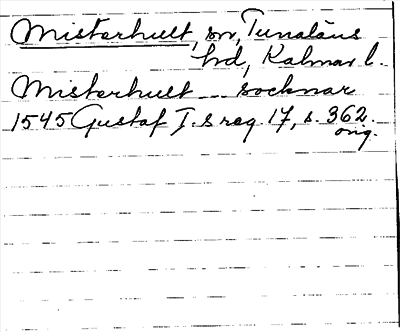 Misterhult, sn, Tunaläns
hd, Kalmar l.
Misterhult --- socknar
1545 Gustaf I.s reg. 17, s. 362.
orig.